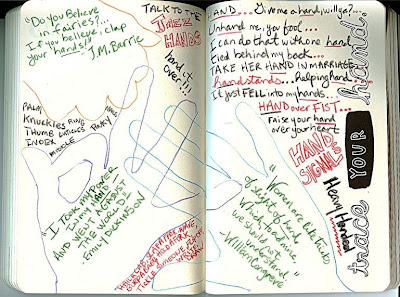 "Do You Believe
in Fairies?...
If you believe, clap
your hands!"
J.M. Barrie
TALK TO THE
JAZZ
HANDS
hand it
over!!!
PALM
KNUCKLES RING
THUMB CUTICLES PINKY
INDEX
MIDDLE
"I TOOK MY POWER
IN MY HAND
AND WENT AGAINST
THE WORLD"
EMILY DICKINSON
HAND... Give me a hand, willya?...
Unhand me, you fool...
I can do that with one hand
tied behind my back...
TAKE HER HAND IN MARRIAGE...
handstands... helping hand...
it just FELL into my hands...
HAND over FIST...
raise your hand
over your heart
HAND
SIGNAL
Heavy Handed
"Women are like tricks
of sleight of hand,
Which, to admire,
we should not
understand"
-William Congreve
trace YOUR hand.